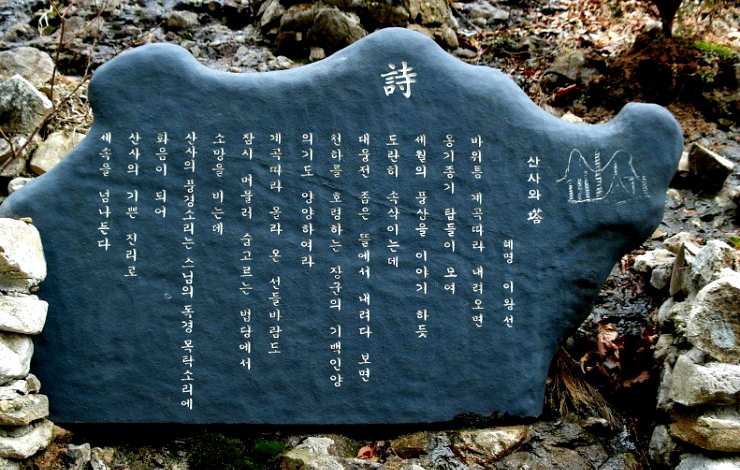 詩
산사와 塔
혜명 이왕선
바위틈 계곡따라 내려오면
옹기종기 탑들이 모여
세월의 풍산을 이야기 하듯
도란히 속삭이는데
대웅전 좁은 뜰에서 내려다 보면
천하를 호령하는 장군의 기백인양
의기도 양양하여라
계곡따라 올라 온 선들바람도
잠시 머물러 숨고르는 법당에서
소망을 비는데
산사의 풍경소리는 스님의 독경 목탁소리에
화음이 되어
산사의 기쁜 진리로
세속을 넘나든다